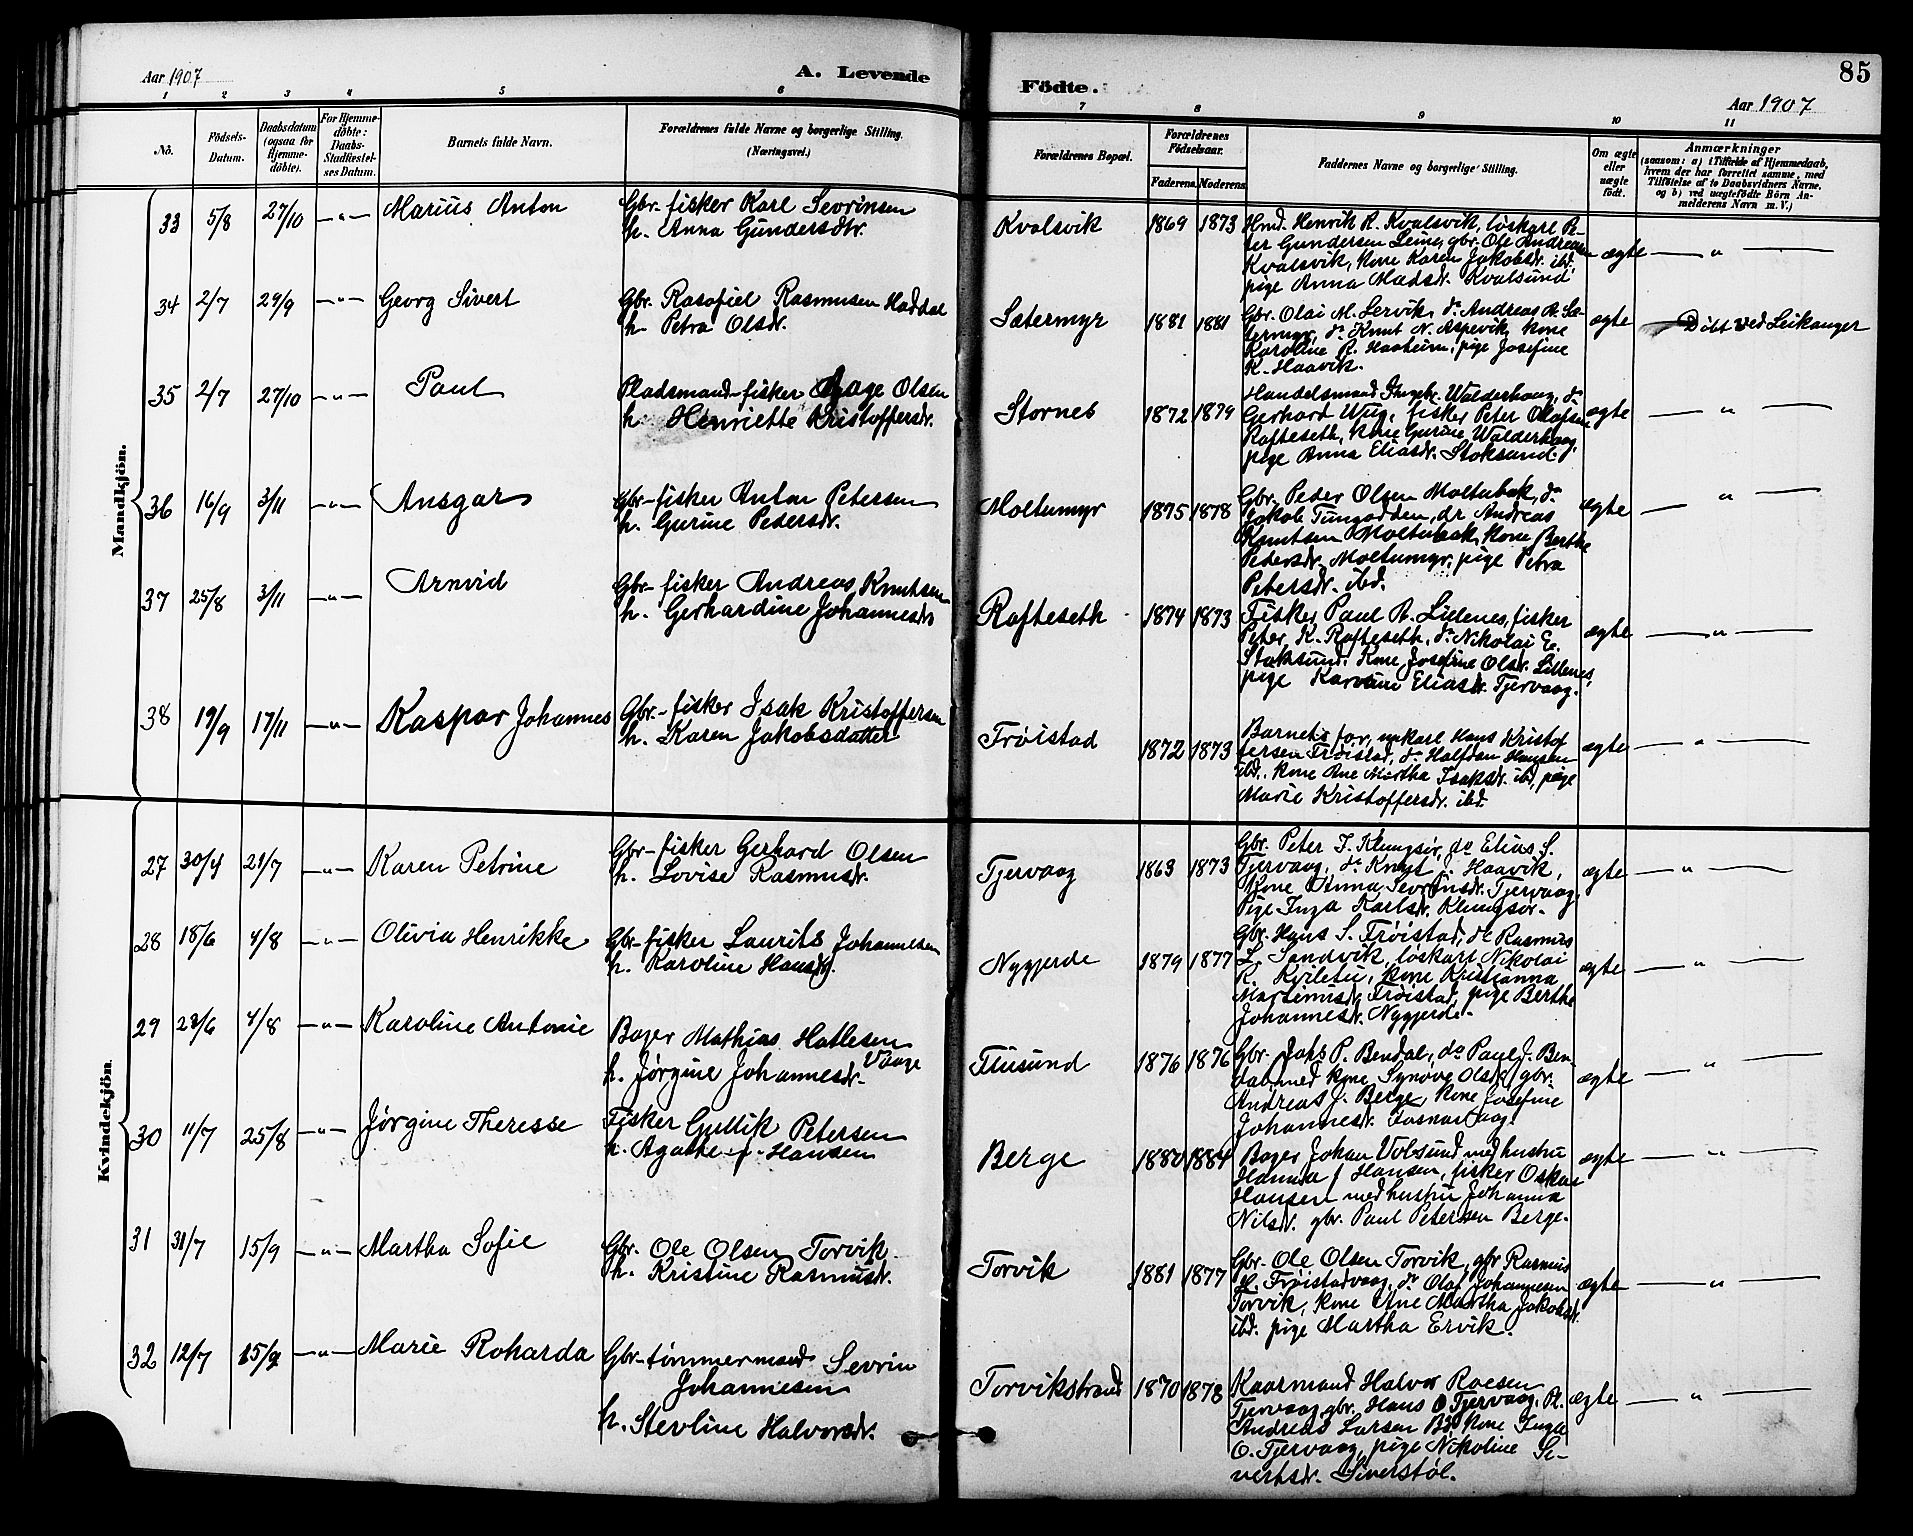 Aar 1907
A. Levende
Födte.
85
Aar 1907
1 2 3 4 5 6 7 8 9 10 11
No.
Födsels-
Datum.
Daabsdatum
(ogsaa for
Hjemme-
döbte).
For Hjemme-
döbte:
Daabs-
Stadfæstel-
ses Datum.
Barnets fulde Navn.
Forældrenes fulde Navne og borgerlige Stilling.
(Næringsvei.)
Forældrenes Bopæl.
Forældrenes
Födselsaar.
Faderens. Moderens.
Faddernes Navne og borgerlige Stilling.
Om ægte
eller
uægte
født.
Anmærkninger
(saasom: a) i Tilfælde af Hjemmedaab,
hvem der har forrettet samme, med
Tilföielse af to Daabsvidners Navne,
og b) ved uægtefödte Börn An-
melderens Navn m. V.)
Mandkjön.
33 5/8 27/10 — " — Marius Anton
Gbr.-fisker Karl Sevrinsen
h. Anna Gundersdtr.
Kvalsvik 1869 1873
Hmd. Henrik R. Kvalsvik, løskarl Pe-
ter Gundersen Leine, gbr. Ole Andreasen
Kvalsvik, kone Karen Jakobsdr. ibd.
pige Anna Madsdr. Kvalsund
ægte — " —
34 2/7 29/9 — " — Georg Sivert
Gbr. Rasmus Haddal
h. Petra Olsdr.
Sætermyr 1881 1881
Gbr. Olai M. Lervik, do Andreas R. Sæ-
termyr, do Knut N. Aspevik, kone
Karoline R. Haaheim, pige Josefine
K. Haavik.
ægte Döbt ved Leikanger
35 2/7 27/10 — " — Paul
Pladsmand-fisker Olsen
h. Henriette Kristoffersdr.
Stornes 1872 1879
Handelsmand Walderhaug, do
Gerhard fisker Peter Olafsen
Rafteseth, kone Gurine Walderhaug
pige Anna Eliasdr. Stoksund.
ægte — " —
36 16/9 3/11 — " — Ansgar
Gbr.-fisker Anton Petersen
h. Gurine Pedersdr.
Moltumyr 1875 1878
Gbr. Peder Olsen Moltubak, do
Jakob Tungodden, do Andreas
Knutsen Moltubak, kone Berthe
Pedersdr. Moltumyr, pige Petra
Petersdr. ibd.
ægte — " —
37 25/8 3/11 — " — Arnvid
Gbr-fisker Andreas Knutsen
h. Gerhardine Johannesdr
Rafteseth 1874 1873
Fisker Paul A. Lillenes, fisker
Peter K. Rafteseth, do Nikolai E.
Stoksund, kone Josefine Olsdr. Lillenes,
pige Karoline Eliasdr. Tjervaag.
ægte — " —
38 19/9 17/11 — " — Kaspar Johannes
Gbr.-fisker Isak Kristoffersen
h. Karen Jakobsdatter
Trøistad 1872 1873
Barnets far, unkarl Hans Kristof
fersen Trøistad, do Halfdan Hansen
ibd., kone Ane Martha Isaksdr. ibd, pige
Marie Kristoffersdr. ibd.
ægte — " —
Kvindekjön.
27 30/4 21/7 — " — Karen Petrine
Gbr-fisker Gerhard Olsen
h. Lovise Rasmusdr.
Tjervaag 1863 1873
Gbr. Peter J. Klungsør, do Elias S.
Tjervaag, do Knut J. Haavik,
Kone Anna Sevrinsdr. Tjervaag,
Pige Inga Karlsdr. Klungsør.
ægte — " —
28 18/6 4/8 — " — Olivia Henrikke
Gbr-fisker Laurits Johannesen
h. Karoline Hansdr.
Nygjerde 1879 1877
Gbr. Hans S. Trøistad, do Rasmus
L. Sandvik, løskarl Nikolai
R. Kviletu, kone Kristianna
Martinusdr. Trøistad, pige Berthe
Johannesdr. Nygjerde.
ægte — " —
29 28/6 4/8 — " — Karoline Antonie
Bager Mathias Hatlesen
Vaage
h. Jørgine Johannesdr.
Flusund 1876 1876
Gbr. Johs P. Bendal, do Paul J. Ben-
dal, med kone Synøve Olsdr, gbr.
Andreas J. Berge, kone Josefine
Johannesdr.
ægte — " —
30 11/7 25/8 — " — Jørgine Theresse
Fisker Gullik Petersen
h. Agathe f. Hansen
Berge 1880 1884
Bager Johan Volsund med hustru
Hanna f. Hansen, fisker Oskar
Hansen med hustru Johanna
Nilsdr. gbr. Paul Petersen Berge.
ægte — " —
31 31/7 15/9 — " — Martha Sofie
Gbr. Ole Olsen Torvik
h. Kristine Rasmusdr.
Torvik 1881 1877
Gbr. Ole Olsen Torvik, gbr Rasmus
Trøistadvaag, do Olaf Johannesen
Torvik, kone Ane Martha Jakobsdr.
ibd. pige Martha Ervik.
ægte — " —
32 12/7 15/9 — " — Marie Roharda
Gbr-tømmermand Sevrin
Johannesen
h. Stevline Halvorsdr.
Torvikstrand 1870 1878
Kaarmand Halvor Roesen
Tjervaag, gbr. Hans O Tjervaag,
Andreas Larsen kone Inga
O. Tjervaag, pige Nikoline Si-
vertsdr. Siverstøl.
ægte — " —